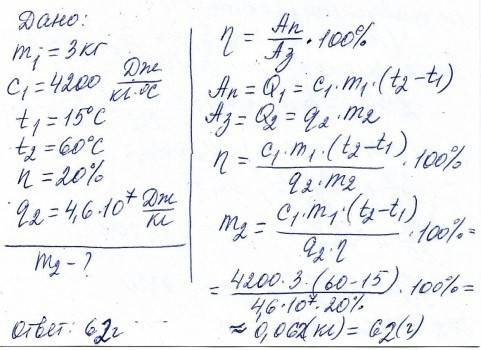 Дано:
m₁ = 3 кг
c₁ = 4200 Дж/кг·°C
t₁ = 15°C
t₂ = 60°C
η = 20%
q₂ = 4,6·10⁷ Дж/кг
m₂ - ?
Ответ: 62г
η = Aп/Aз · 100%
Aп = Q₁ = c₁·m₁·(t₂-t₁)
Aз = Q₂ = q₂·m₂
η = c₁·m₁·(t₂-t₁)/q₂·m₂ · 100%
m₂ = c₁·m₁·(t₂-t₁)/q₂·η · 100% =
= 4200·3·(60-15)/4,6·10⁷·20% · 100% =
≈ 0,062(кг) = 62(г)